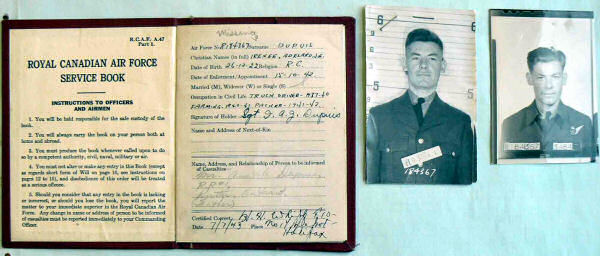 R.C.A.F. A.47
Part 1.
ROYAL CANADIAN AIR FORCE
SERVICE BOOK
INSTRUCTIONS TO OFFICERS
AND AIRMEN
1. You will be held responsible for the safe custody of the
book.
2. You will always carry the book on your person both at
home and abroad.
3. You must produce the book whenever called upon to do
so by a competent authority, civil, naval, military or air.
4. You must not alter or make any entry in this Book (except
as regards short form of Will on page 10, see instructions on
pages 12 to 15), and disobedience of this order will be treated
as a serious offence.
5. Should you consider that any entry in the book is lacking
or incorrect, or should you lose the book, you will report
the matter to your immediate superior in the Royal Canadian Air
Force. Any change in name or address of person to be informed
of casualties must be reported immediately to your Commanding
Officer.
Missing
Air Force No. R184367 Surname DUPUIS
Christian Names (in full) IRENEE, ADELARD, JE.
Date of Birth 26-12-22 Religion R.C.
Date of Enlistment/Appointment 15-10-42
Married (M), Widower (W) or Single (S)
Designation in Civil Life TRUCK DRIVER
FARMING
Signature of Holder Sgt I. A. J. Dupuis
Name and Address of Next-of-Kin
Name, Address, and Relationship of Person to be informed
of Casualties
Certified Correct,
Date 7/7/43 Place No. 1 Y Depot
Halifax
184367
184367